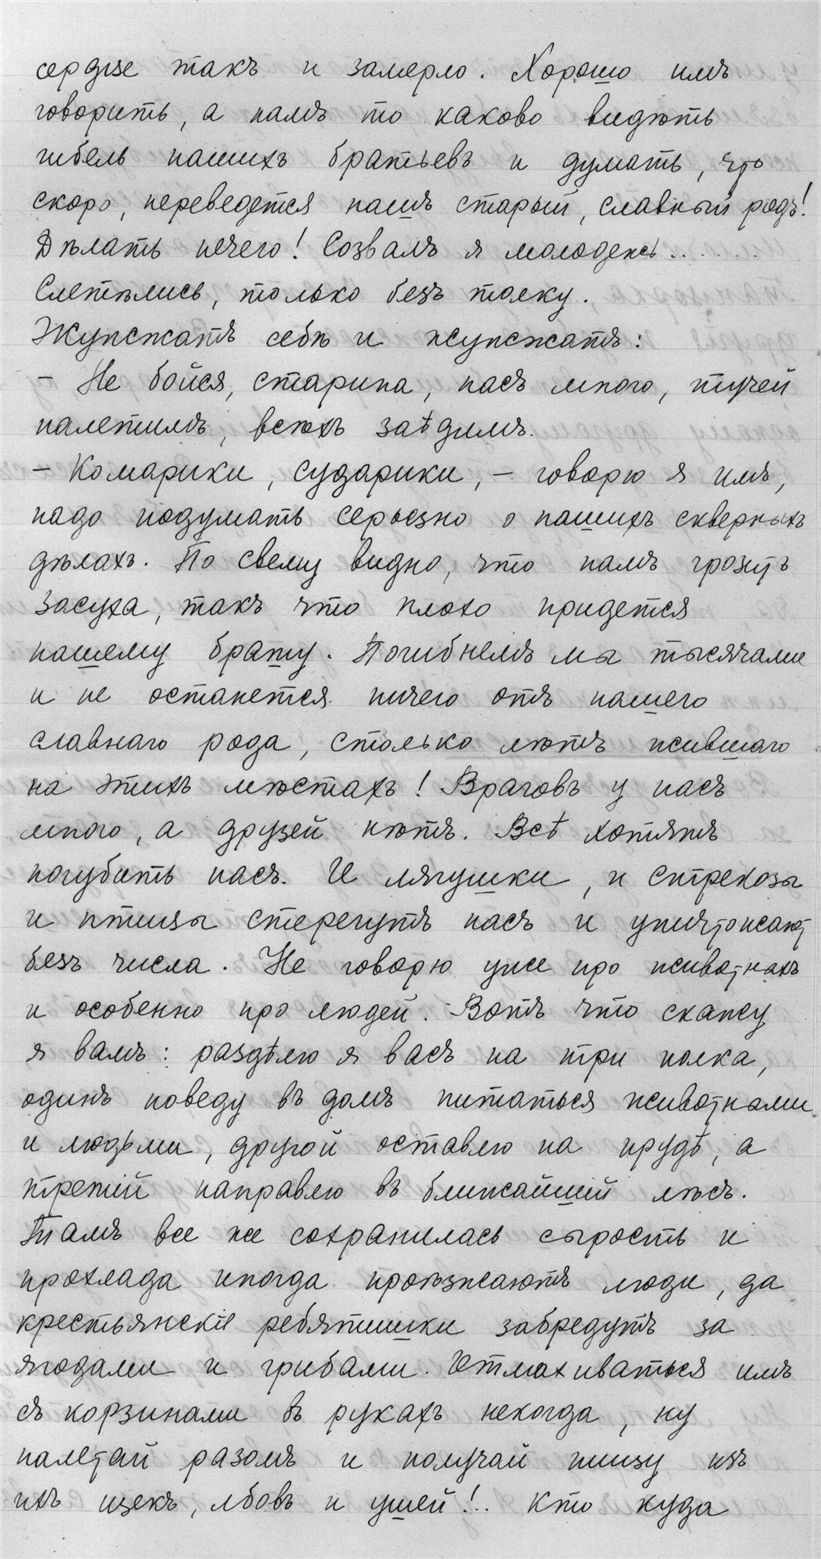 сердце такъ и замерло. Хорошо имъ
говорить, а намъ то каково видѣть
гибель нашихъ братьевъ и думать, что
скоро, переведется нашъ старый, славный родъ!
Дѣлать нечего! Созвалъ я молодежь.......
Слетѣлись, только безъ толку.
Жужжатъ себѣ и жужжатъ:
- Не бойся, старина, насъ много, тучей
налетимъ, всѣхъ заѣдимъ.
- Комарики, сударики, - говорю я имъ,
надо подумать серьезно о нашихъ скверныхъ
дѣлахъ. По всему видно, что намъ грозитъ
засуха, такъ что плохо придется
нашему брату. Погибнемъ мы тысячами
и не останется ничего отъ нашего
славнаго рода, столько лѣтъ жившаго
на этихъ мѣстахъ! Враговъ у насъ
много, а друзей нѣтъ. Всѣ хотятъ
погубить насъ. И лягушки, и стрекозы
и птицы стерегутъ насъ и уничтожают
безъ числа. Не говорю уже про животныхъ
и особенно про людей. Вотъ что скажу
я вамъ: раздѣлю я васъ на три полка,
одинъ поведу въ домъ питаться животными
и людьми, другой оставлю на прудѣ, а
третій направлю въ ближайшій лѣсъ.
Тамъ все же сохранилась сырость и
прохлада иногда проѣзжаютъ люди, да
крестьянскіе ребятишки забредутъ за
ягодами и грибами. Отмахиваться имъ
съ корзинами въ рукахъ некогда, ну
налетай разомъ и получай пищу изъ
ихъ щекъ, лбовъ и ушей!.. Кто куда